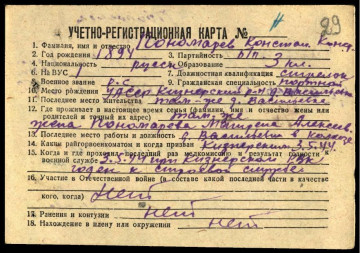 29
УЧЕТНО-РЕГИСТРАЦИОННАЯ КАРТА №
1. Фамилия, имя и отчество Пономарев Констан.
2. Год рождения 1894 3. Партийность б/п
4. Национальность русск 5. Образование 3 кл.
6. №ВУС 1 7. Должностная квалификация стрелок
8. Военное звание р-с 9. Гражданская специальность
10. Место рождения УАССР Кизнерский р-н д. Васильево
11. Последнее место жительства там-же д. Васильево
12. Где проживает в настоящее время семья (фамилия, имя и отчество жены или
родителей и точный их адрес) там-же
жена Пономарева Алексеев.
13. Последнее место работы и должность д. Васильево в колхозе
14. Каким райгорвоенкоматом и когда призван Кизнерским 3.5.44
15. Когда и где проходил последний раз медкомиссию и результат годности к
военной службе 3.5.44 при Кизнерском РВК
годен к строевой службе
16. Участие в Отечественной войне (в составе какой последней части и в качестве
кого, когда) Нет
17. Ранения и контузии нет
18. Нахождение в плену или окружении нет